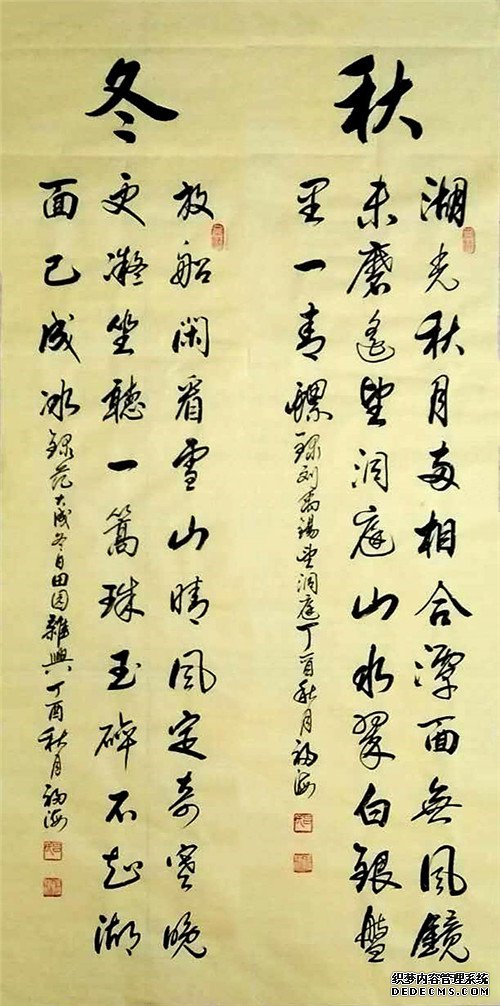 秋
湖光秋月两相合潭面無风鏡
未磨遥望洞庭山水翠白銀盤
里一青螺
錄刘禹锡望洞庭丁酉秋月福海
冬
放船闲看雪山晴风定奇寒晚
更凝坐聽一篙珠玉碎不知湖
面已成冰
錄范大成冬日田园雜興丁酉秋月福海
织梦内容管理系统
DEDECMS.COM